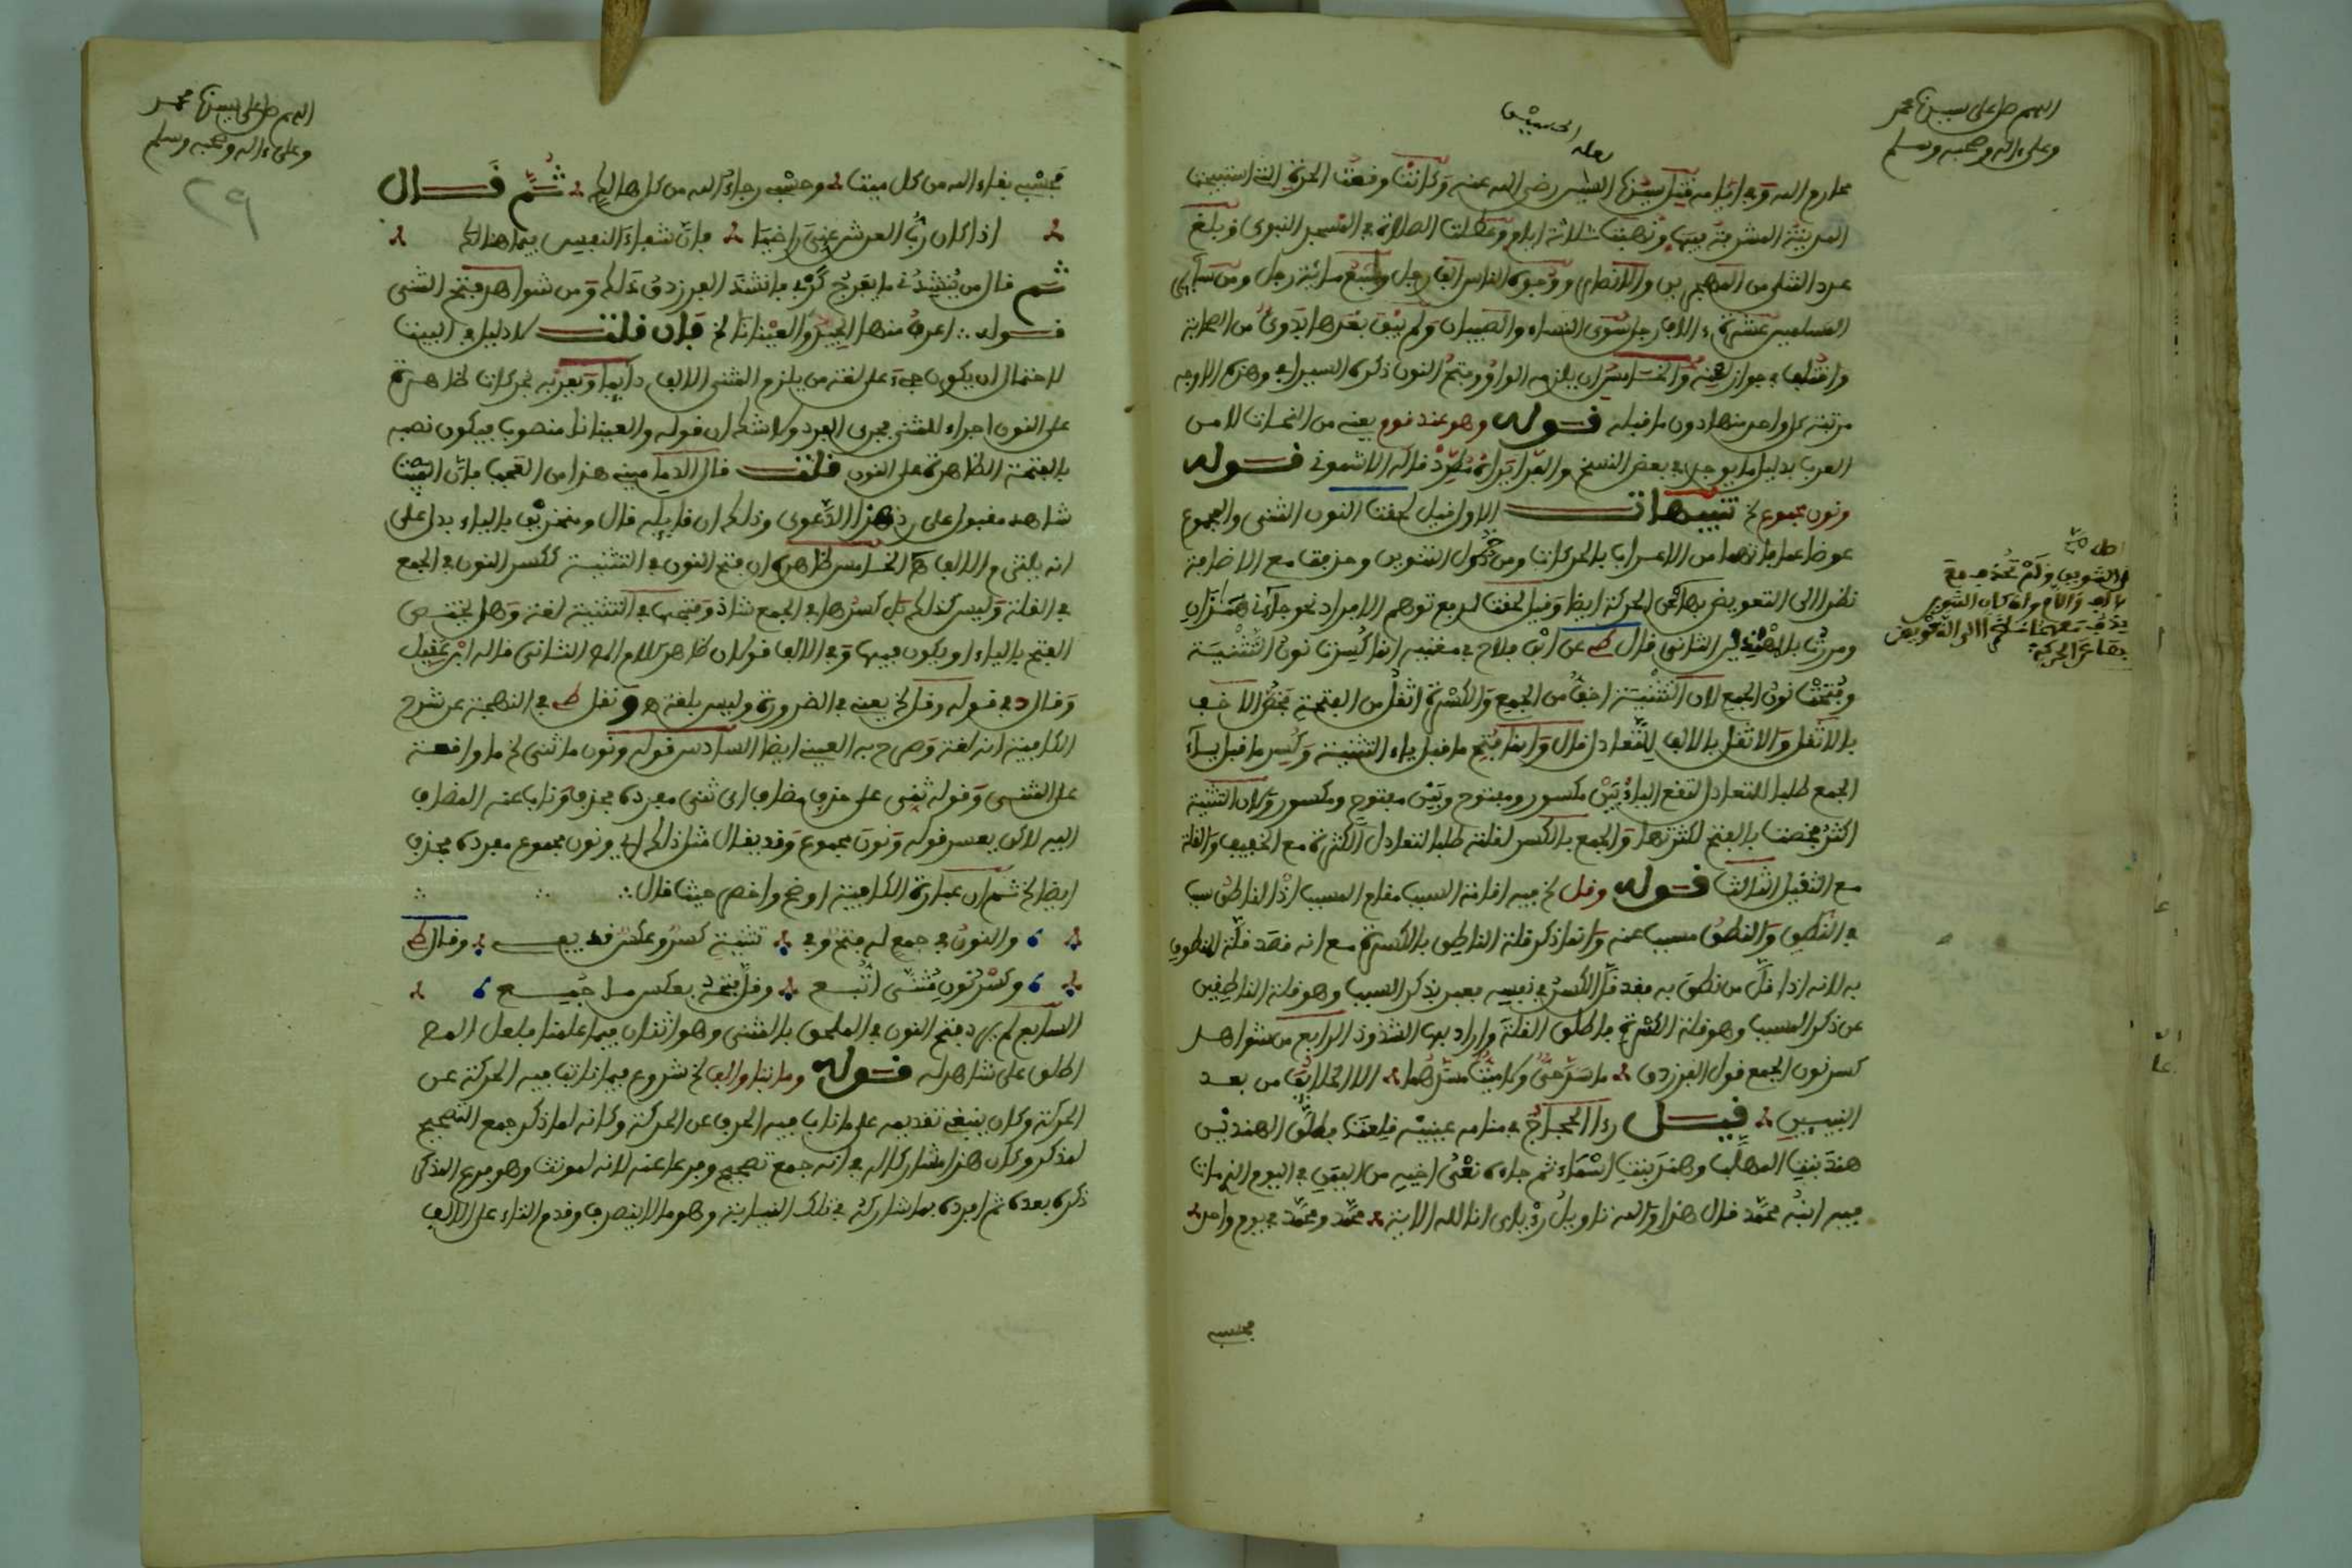 اللهم صل على سيدنا محمد
وعلى ءاله وصحبه وسلم
لعله الحسين
محارم الله وفي ايامه قتل سيدنا رضي الله عنه وكانت وقعت الحرة التي استبيحت
المدينة المشرفة فيها ونهبت ثلاثة ايام وعطلت الصلاة في المسجد النبوي وبلغ
عدد القتلى من المهاجرين والانصار ووجوه الناس الف رجل وسبع مائة رجل ومن سائر
المسلمين عشرة ءالاف رجل سوى النساء والصبيان ولم يبق بعدها بدري من الصحابة
ان يلزمه الواو وفتح النون ذكره السيرافي وهذه الاوجه
مرتبة كل واحد منها دون ما قبله قوله وهو عند قوم يعني من النحاة لا من
العرب بدليل ما يوجد في بعض النسخ والفراء يراه مطرد قاله الاشموني قوله
ونون مجموع لخ تنبيهات الاول قيل لحقت النون المثنى والمجموع
عوضا عما فاتهما من الاعراب بالحركات ومن دخول التنوين وحذفت مع الاضافة
نظرا الى التعويض بها عن الحركة ايضا وقيل لحقت لدفع توهم الافراد نحو جاءني هذان
ومررت بالمهتدين الثاني قال ط عن ابن فلاح في مغنيه انما كسرت نون التثنية
وفتحت نون الجمع لان التثنية اخف من الجمع والكسرة اثقل من الفتحة فخص الاخف
بالاثقل والاثقل بالاخف للتعادل قال وانما فتح ما قبل ياء التثنية وكسر ما قبل ياء
الجمع طلبا للتعادل لتقع الياء بين مكسور ومفتوح وبين مفتوح ومكسور ولان التثنية
اكثر فخصت بالفتح لكثرتها والجمع بالكسر لقلته طلبا لتعادل الكثرة مع الخفيف والقلة
مع الثقيل الثالث قوله وقل لخ فيه اقامة السبب مقام المسبب اذ الناطق سبب
في النطق والنطق مسبب عنه وانما ذكر قلة الناطق بالكسرة مع انه قصد قلة النطق
به لانه اذا قل من نطق به فقد قل الكسر في نفسه فعبر بذكر السبب وهو قلة الناطقين
عن ذكر المسبب وهو قلة الكسرة فاطلق القلة واراد بها الشذوذ الرابع من شواهد
كسر نون الجمع قول الفرزدق ما سد حي ولا ميت مسدهما الا الخلائف من بعد
النبيين قيل رءا الحجاج في منامه عينيه قلعتا فطلق الهندين
هند بنت المهلب وهند بنت اسماء ثم جاءه نعي اخيه من اليمن في اليوم الذي مات
فيه ابنه محمد فقال هذا والله تاويل رؤياي انا لله الاية محمد ومحمد في يوم واحد
فحسبي
اصله صح
التنوين ولم تحذف مع
الالف واللام وان كان التنوين
يحذف معهما نظرا الى التعويض
بها عن الحركة
اللهم صل على سيدنا محمد
وعلى ءاله وصحبه وسلم
٢٩
فحسبي بقاء الله من كل ميت وحسبي رجاء الله من كل هالك ثم قال
اذا كان رب العرش عني راضيا فان شفاء النفس فيما هنالك
ثم قال من ينشدني ما يفرج كربي فانشد الفرزدق ذلك ومن شواهد فتح المثنى
قوله اعرف منها الجيد والعينانا لخ فان قلت لا دليل في البيت
لاحتمال ان يكون جاء على لغة من يلزم المثنى الالف دائما ويعربه بحركات ظاهرة
على النون اجراء للمثنى مجرى المفرد ولا شك ان قوله والعينانا منصوب فيكون نصبه
بالفتحة الظاهرة على النون قلت قال الدماميني هذا من العجب فان البيت
شاهد مقبول على رد هذا الدعوى وذلك ان قايله قال ومنخرين بالياء فدل على
انه يلتزم الالف الخامس ظاهره ان فتح النون في التثنية ككسر النون في الجمع
في القلة وليس كذلك بل كسرها في الجمع شاذ وفتحها في التثنية لغة وهل يختص
الفتح بالياء او يكون فيها وفي الالف قولان ظاهر كلام المص الثاني قاله ابن عقيل
وقال د في قوله وقل لخ يعني في الضرورة وليس بلغة هـ ونقل ط في البهجة عن شرح
الكافية انه لغة وصرح به العيني ايضا السادس قوله ونون ما ثني لخ ما واقعة
على المثنى وقوله ثني على حذف مضاف اي ثني مفرده فحذف وناب عنه المضاف
اليه لاكن يعسر قوله ونون مجموع وقد يقال مثل ذلك اي ونون مجموع مفرده فحذف
ايضا لخ ثم ان عبارة الكافية اوضح واخصر حيث قال
والنون في جمع له فتح وفي تثنية كسر وعكس قد يفي وقال ط
وكسر نون مثنى اتبع وقل فتحه بعكس ما جمع
السابع لم يرد فتح النون في الملحق بالمثنى وهو اثنان فيما علمنا فلعل المص
اطلق على شاهد له قوله وما بتا والف لخ شروع فيما نابت فيه الحركة عن
الحركة وكان ينبغي تقديمه على ما ناب فيه الحرف عن الحركة وكانه لما ذكر جمع التصحيح
لمذكر وكان هذا مشاركا له في انه جمع تصحيح وفرعا عنه لانه لمونث وهو فرع المذكر
ذكره بعده ثم اردفه بما شاركه في تلك النيابة وهو ما لا ينصرف وقدم التاء على الالف